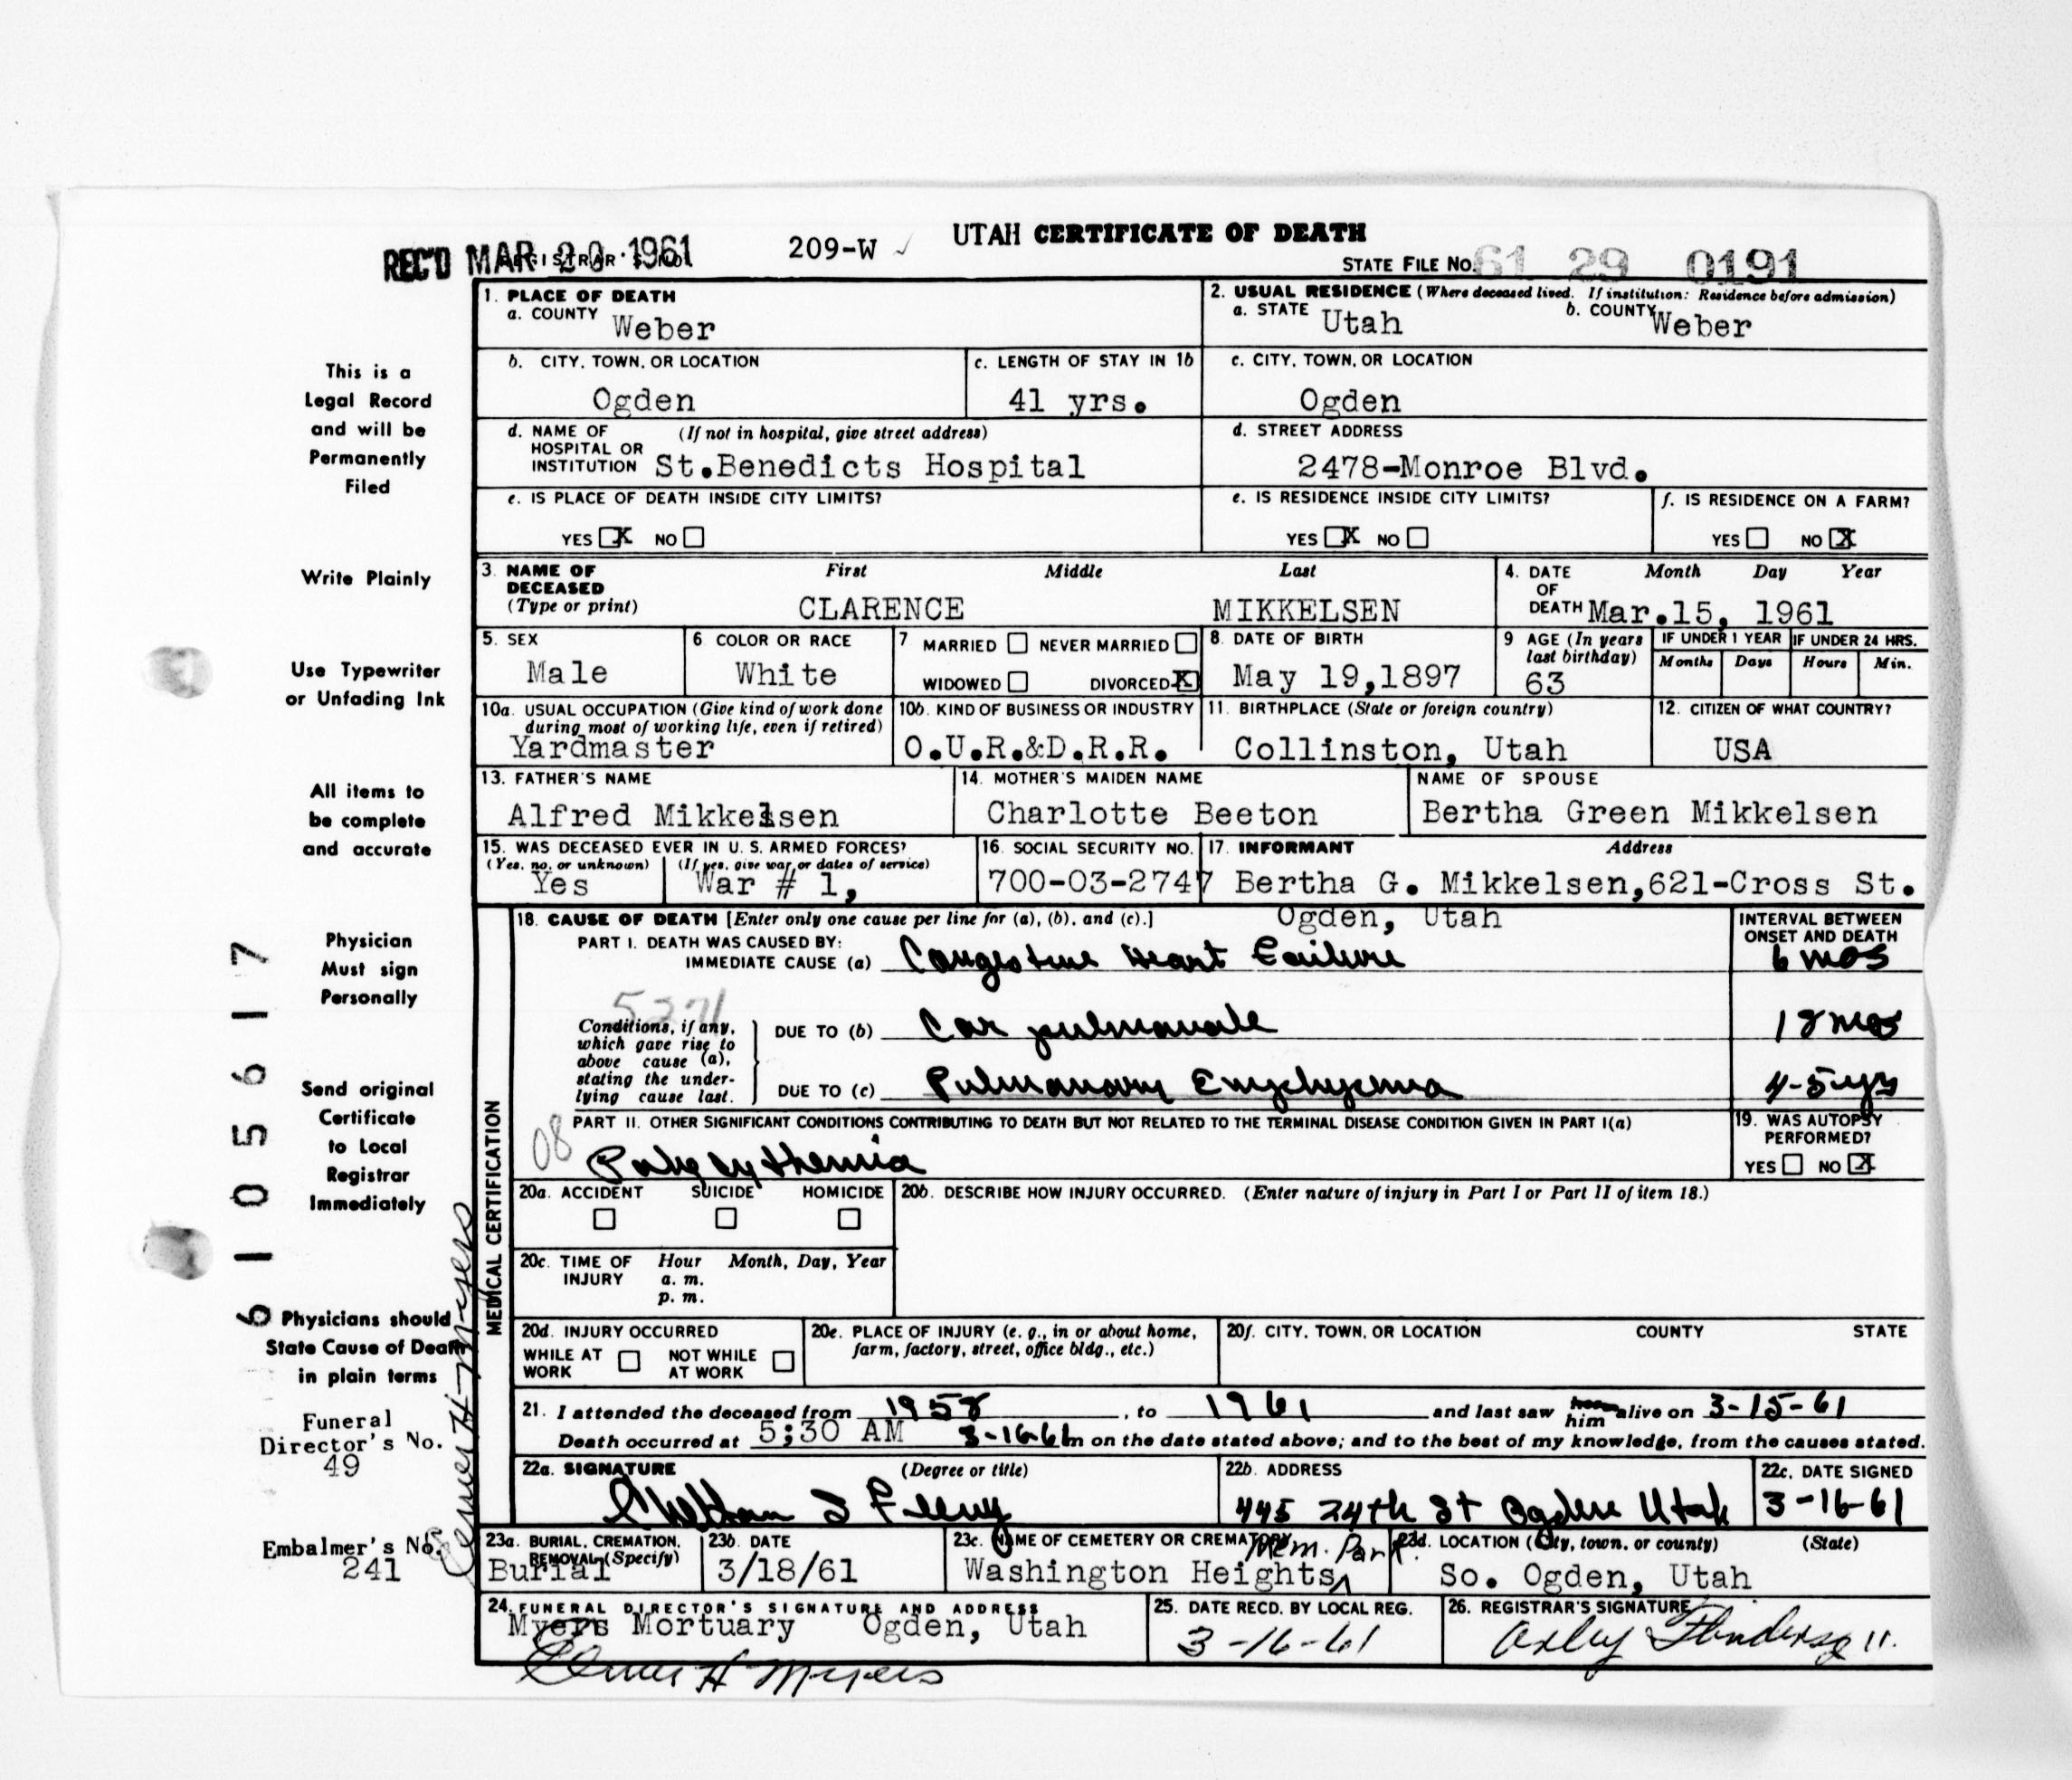 UTAH CERTIFICATE OF DEATH
REC'D MAR 20 1961
REGISTRAR'S NO.
209-W
STATE FILE NO. 61 29 0191
1. PLACE OF DEATH
a. COUNTY Weber
2. USUAL RESIDENCE (Where deceased lived. If institution: Residence before admission)
a. STATE Utah b. COUNTY Weber
b. CITY, TOWN, OR LOCATION
Ogden
c. LENGTH OF STAY IN 1b
41 yrs.
c. CITY, TOWN, OR LOCATION
Ogden
d. NAME OF HOSPITAL OR INSTITUTION (If not in hospital, give street address)
St.Benedicts Hospital
d. STREET ADDRESS
2478-Monroe Blvd.
e. IS PLACE OF DEATH INSIDE CITY LIMITS?
YES X NO
e. IS RESIDENCE INSIDE CITY LIMITS?
YES X NO
f. IS RESIDENCE ON A FARM?
YES NO X
3. NAME OF DECEASED (Type or print)
First Middle Last
CLARENCE MIKKELSEN
4. DATE OF DEATH Month Day Year
Mar.15, 1961
5. SEX
Male
6. COLOR OR RACE
White
7. MARRIED NEVER MARRIED
WIDOWED DIVORCED X
8. DATE OF BIRTH
May 19,1897
9 AGE (In years last birthday)
63
IF UNDER 1 YEAR
Months Days
IF UNDER 24 HRS.
Hours Min.
10a. USUAL OCCUPATION (Give kind of work done during most of working life, even if retired)
Yardmaster
10b. KIND OF BUSINESS OR INDUSTRY
O.U.R.&D.R.R.
11. BIRTHPLACE (State or foreign country)
Collinston, Utah
12. CITIZEN OF WHAT COUNTRY?
USA
13. FATHER'S NAME
Alfred Mikkelsen
14. MOTHER'S MAIDEN NAME
Charlotte Beeton
NAME OF SPOUSE
Bertha Green Mikkelsen
15. WAS DECEASED EVER IN U. S. ARMED FORCES?
(Yes, no, or unknown) (If yes, give war or dates of service)
Yes War # 1,
16. SOCIAL SECURITY NO.
700-03-2747
17. INFORMANT Address
Bertha G. Mikkelsen,621-Cross St.
Ogden, Utah
MEDICAL CERTIFICATION
18. CAUSE OF DEATH [Enter only one cause per line for (a), (b), and (c).]
INTERVAL BETWEEN ONSET AND DEATH
PART I. DEATH WAS CAUSED BY:
IMMEDIATE CAUSE (a) Congestive Heart Failure 6 mos
5271
Conditions, if any, which gave rise to above cause (a), stating the underlying cause last.
DUE TO (b) Cor pulmonale 18 mos
DUE TO (c) Pulmonary Emphysema 4-5 yrs
PART II. OTHER SIGNIFICANT CONDITIONS CONTRIBUTING TO DEATH BUT NOT RELATED TO THE TERMINAL DISEASE CONDITION GIVEN IN PART I(a)
08
Polycythemia
19. WAS AUTOPSY PERFORMED?
YES NO X
20a. ACCIDENT SUICIDE HOMICIDE
20b. DESCRIBE HOW INJURY OCCURRED. (Enter nature of injury in Part I or Part II of item 18.)
20c. TIME OF INJURY Hour Month, Day, Year
a. m.
p. m.
20d. INJURY OCCURRED
WHILE AT WORK NOT WHILE AT WORK
20e. PLACE OF INJURY (e. g., in or about home, farm, factory, street, office bldg., etc.)
20f. CITY, TOWN, OR LOCATION COUNTY STATE
21. I attended the deceased from 1958, to 1961 and last saw him alive on 3-15-61
Death occurred at 5;30 AM 3-16-61 m on the date stated above; and to the best of my knowledge, from the causes stated.
22a. SIGNATURE (Degree or title)
22b. ADDRESS
445 24th St Ogden Utah
22c. DATE SIGNED
3-16-61
23a. BURIAL, CREMATION, REMOVAL (Specify)
Burial
23b. DATE
3/18/61
23c. NAME OF CEMETERY OR CREMATORY
Washington Heights Mem. Park
23d. LOCATION (City, town, or county) (State)
So. Ogden, Utah
24. FUNERAL DIRECTOR'S SIGNATURE AND ADDRESS
Myers Mortuary Ogden, Utah
Elmer H Myers
25. DATE RECD. BY LOCAL REG.
3-16-61
26. REGISTRAR'S SIGNATURE
This is a
Legal Record
and will be
Permanently
Filed
Write Plainly
Use Typewriter
or Unfading Ink
All items to
be complete
and accurate
Physician
Must sign
Personally
Send original
Certificate
to Local
Registrar
Immediately
Physicians should
State Cause of Death
in plain terms
Funeral
Director's No.
49
Embalmer's No.
241
Elmer H Myers
6 1 0 5 6 1 7